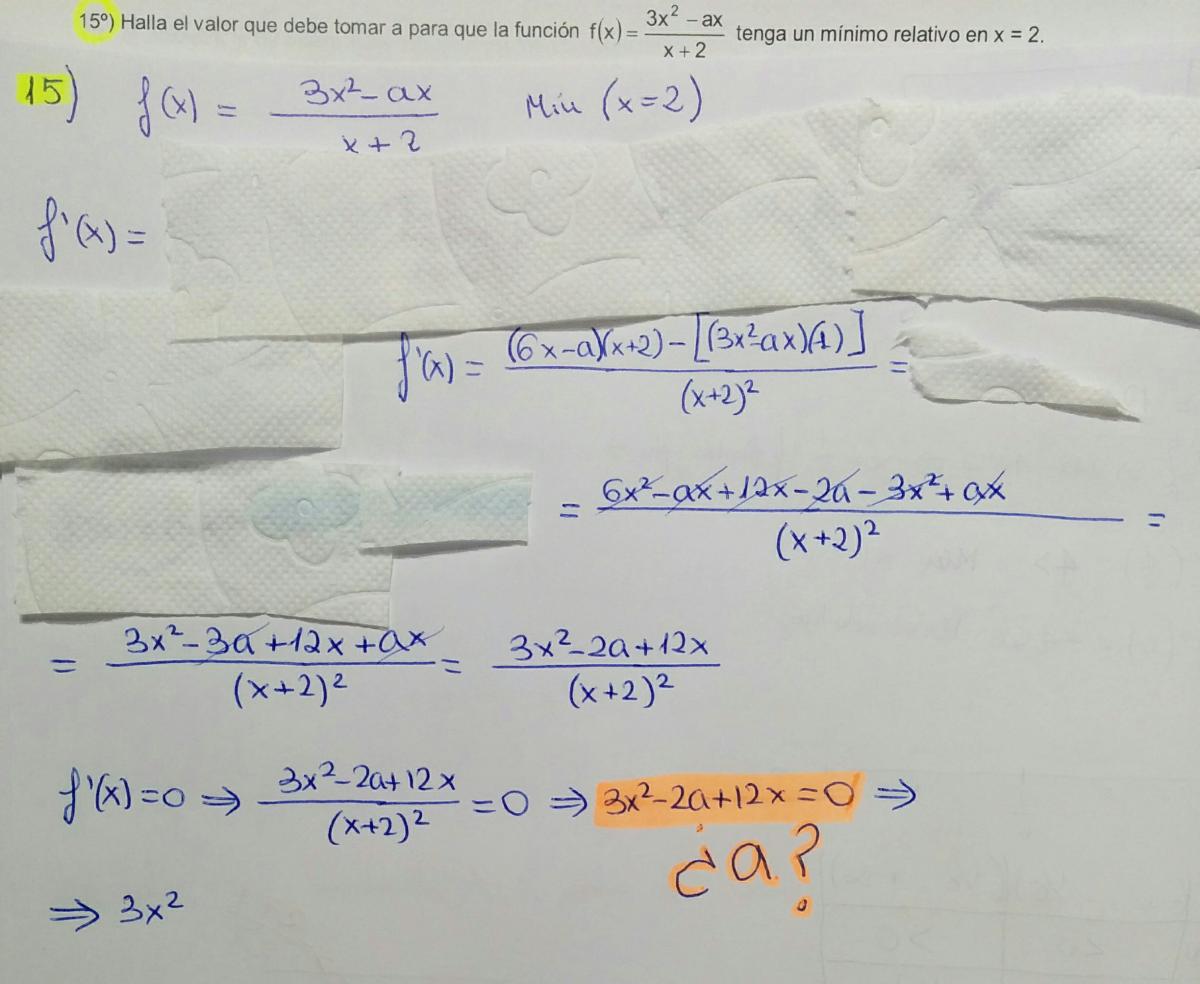 15º) Halla el valor que debe tomar a para que la función f(x) = (3x² − ax)/(x + 2) tenga un mínimo relativo en x = 2.
15) f(x) = (3x² − ax)/(x + 2) Min (x=2)
f'(x) =
f'(x) = ((6x−a)(x+2) − [(3x²−ax)(1)])/((x+2)²) =
= (6x² − ax + 12x − 2a − 3x² + ax)/((x+2)²) =
= (3x² − 3a + 12x + ax)/((x+2)²) = (3x² − 2a + 12x)/((x+2)²)
f'(x) = 0 ⇒ (3x² − 2a + 12x)/((x+2)²) = 0 ⇒ 3x² − 2a + 12x = 0 ⇒
¿a?
⇒ 3x²